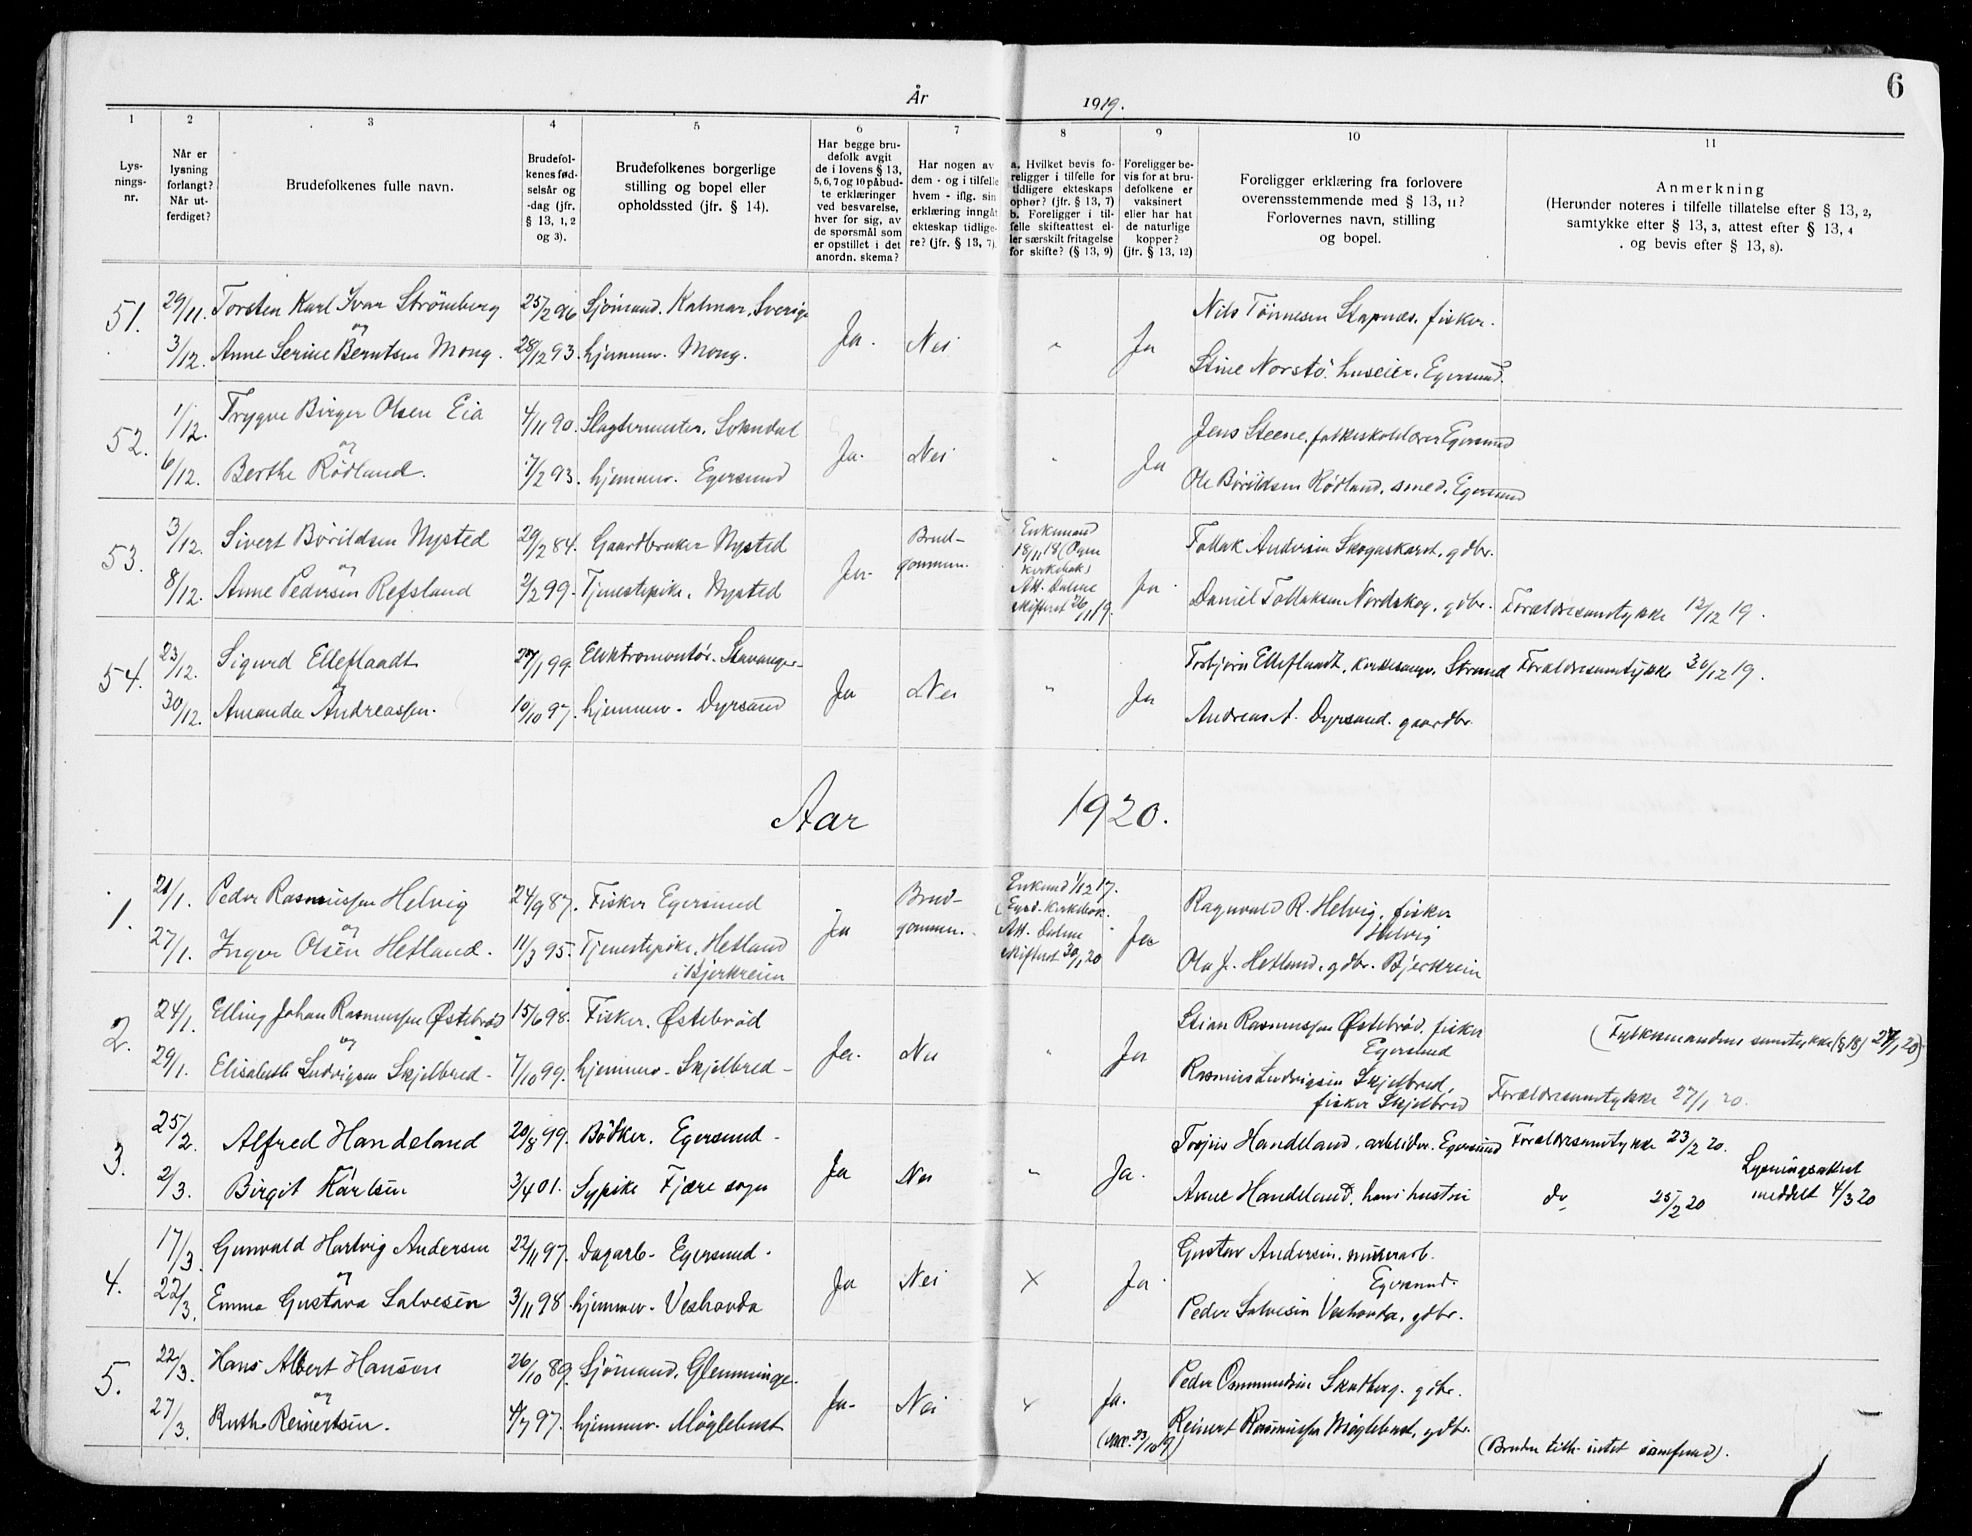 6
År 1919.
1 2 3 4 5 6 7 8 9 10 11
Lys-
nings-
nr.
Når er
lysning
forlangt?
Når ut-
ferdiget?
Brudefolkenes fulle navn.
Brudefol-
kenes fød-
selsår og
-dag (jfr.
§ 13, 1, 2
og 3).
Brudefolkenes borgerlige
stilling og bopel eller
opholdssted (jfr. § 14).
Har begge bru-
defolk avgit
de i lovens § 13,
5, 6, 7 og 10 påbud-
te erklæringer
ved besvarelse,
hver for sig, av
de spørsmål som
er opstillet i det
anordn. skema?
Har nogen av
dem - og i tilfelle
hvem - iflg. sin
erklæring inngåt
ekteskap tidlige-
re? (jfr. § 13, 7).
a. Hvilket bevis fo-
religger i tilfelle for
tidligere ekteskaps
ophør? (jfr. § 13, 7)
b. Foreligger i til-
felle skifteattest el-
ler særskilt fritagelse
for skifte? (§ 13, 9)
Foreligger be-
vis for at bru-
defolkene er
vaksinert
eller har hat
de naturlige
kopper?
(jfr. § 13, 12)
Foreligger erklæring fra forlovere
overensstemmende med § 13, 11?
Forlovernes navn, stilling
og bopel.
Anmerkning
(Herunder noteres i tilfelle tillatelse efter § 13, 2,
samtykke efter § 13, 3, attest efter § 13, 4
og bevis efter § 13, 8).
51. 29/11. Torsten Karl Ivar Strömberg 25/2 96 Sjömand. Kalmar, Sverige Ja. Nei " Ja Nils Tönnesen Stapnes. fisker.
og
3/12. Anne Serine Berntsen Mong. 28/12 93. hjemmev. Mong. Stine Norstö. huseier. Egersund.
52. 1/12. Trygve Birger Olsen Eia 4/11 90. Slagtermester. Sokndal Ja. Nei " Ja Jens Steene. folkeskolelærer Egersund
og
6/12. Berthe Rödland. 7/2 93. hjemmev. Egersund Ole Börildsen Rödland. smed. Egersund
53. 3/12. Sivert Börildsen Nysted 29/2 84. Gaardbruker Nysted Ja. Brud-
gommen. Enkemand
18/11 18 (Ogna
kirkebok)
Att. Dalene
skifteret 26/11 19. Ja Tollak Andersen Skogaskaret. gdbr.
og
8/12. Anne Pedersen Refsland 2/2 99. Tjenestepike. Nysted Daniel Tollaksen Nordskog. gdbr. Forældresamtykke 12/12 19.
54. 23/12. Sigurd Elleflaadt 27/1 99. Elektromontör. Stavanger Ja Nei " Ja Torbjörn Elleflaadt. kirkesanger. Strand Forældresamtykke 30/12 19.
og
30/12. Amanda Andreassen. 10/10 97. hjemmev. Dyrsand Andreas A. Dyrsand. gaardbr.
Aar 1920.
1. 21/1. Peder Rasmussen Helvig 24/9 87. Fisker Egersund Ja Brud-
gommen. Enkemd 1/12 17.
(Egsd. kirkebok.
Att. Dalene
skifteret 30/1 20 Ja Ragnvald R. Helvig. fisker
Helvig
og
27/1. Inger Olsen Hetland. 11/3 95. Tjenestepike. Hetland
i Bjerkreim Ola J. Hetland. gdbr. Bjerkreim
2. 24/1. Elling Johan Rasmussen Østebröd 15/6 98. Fisker. Østebröd Ja. Nei " Ja Stian Rasmussen Østebröd. fisker
Egersund (Fylkesmandens samtykke (§ 18) 27/1 20)
og
29/1. Elisabeth Ludvigsen Skjelbred 7/10 99. hjemmev. Skjelbred Rasmus Ludvigsen Skjelbred,
fisker Skjelbred Forældresamtykke 27/1 20.
3. 25/2. Alfred Handeland 20/8 99. Bödker. Egersund Ja Nei " Ja. Handeland, arbeider. Egersund Forældresamtykke 23/2 20.
2/3. Birgit Karlsen 3/4 01. Sypike Fjære sogn Anne Handeland, hans hustru do 25/2 20
Lysningsattest
meddelt 4/3 20
4. 17/3. Gunvald Hartvig Andersen 22/11 97. Dagarb. Egersund Ja Nei x Ja Gustav Andersen. murerarb.
Egersund.
og
22/3. Emma Gustava Salvesen 3/11 98. hjemmev. Veshovda Peder Salvesen Veshovda, gdbr.
5. 22/3. Hans Albert Hansen 26/10 89. Sjömand. Glemminge. Ja Nei x Ja.
(vacc. 23/10 19) Peder Ommundsen Skadberg. gdbr.
og
27/3. Ruth Reinertsen. 4/7 97. hjemmev. Møglebust Reinert Rasmussen Møglebust, gdbr. (Bruden tilh. intet samfund).